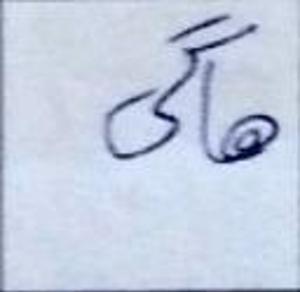 ھاگی